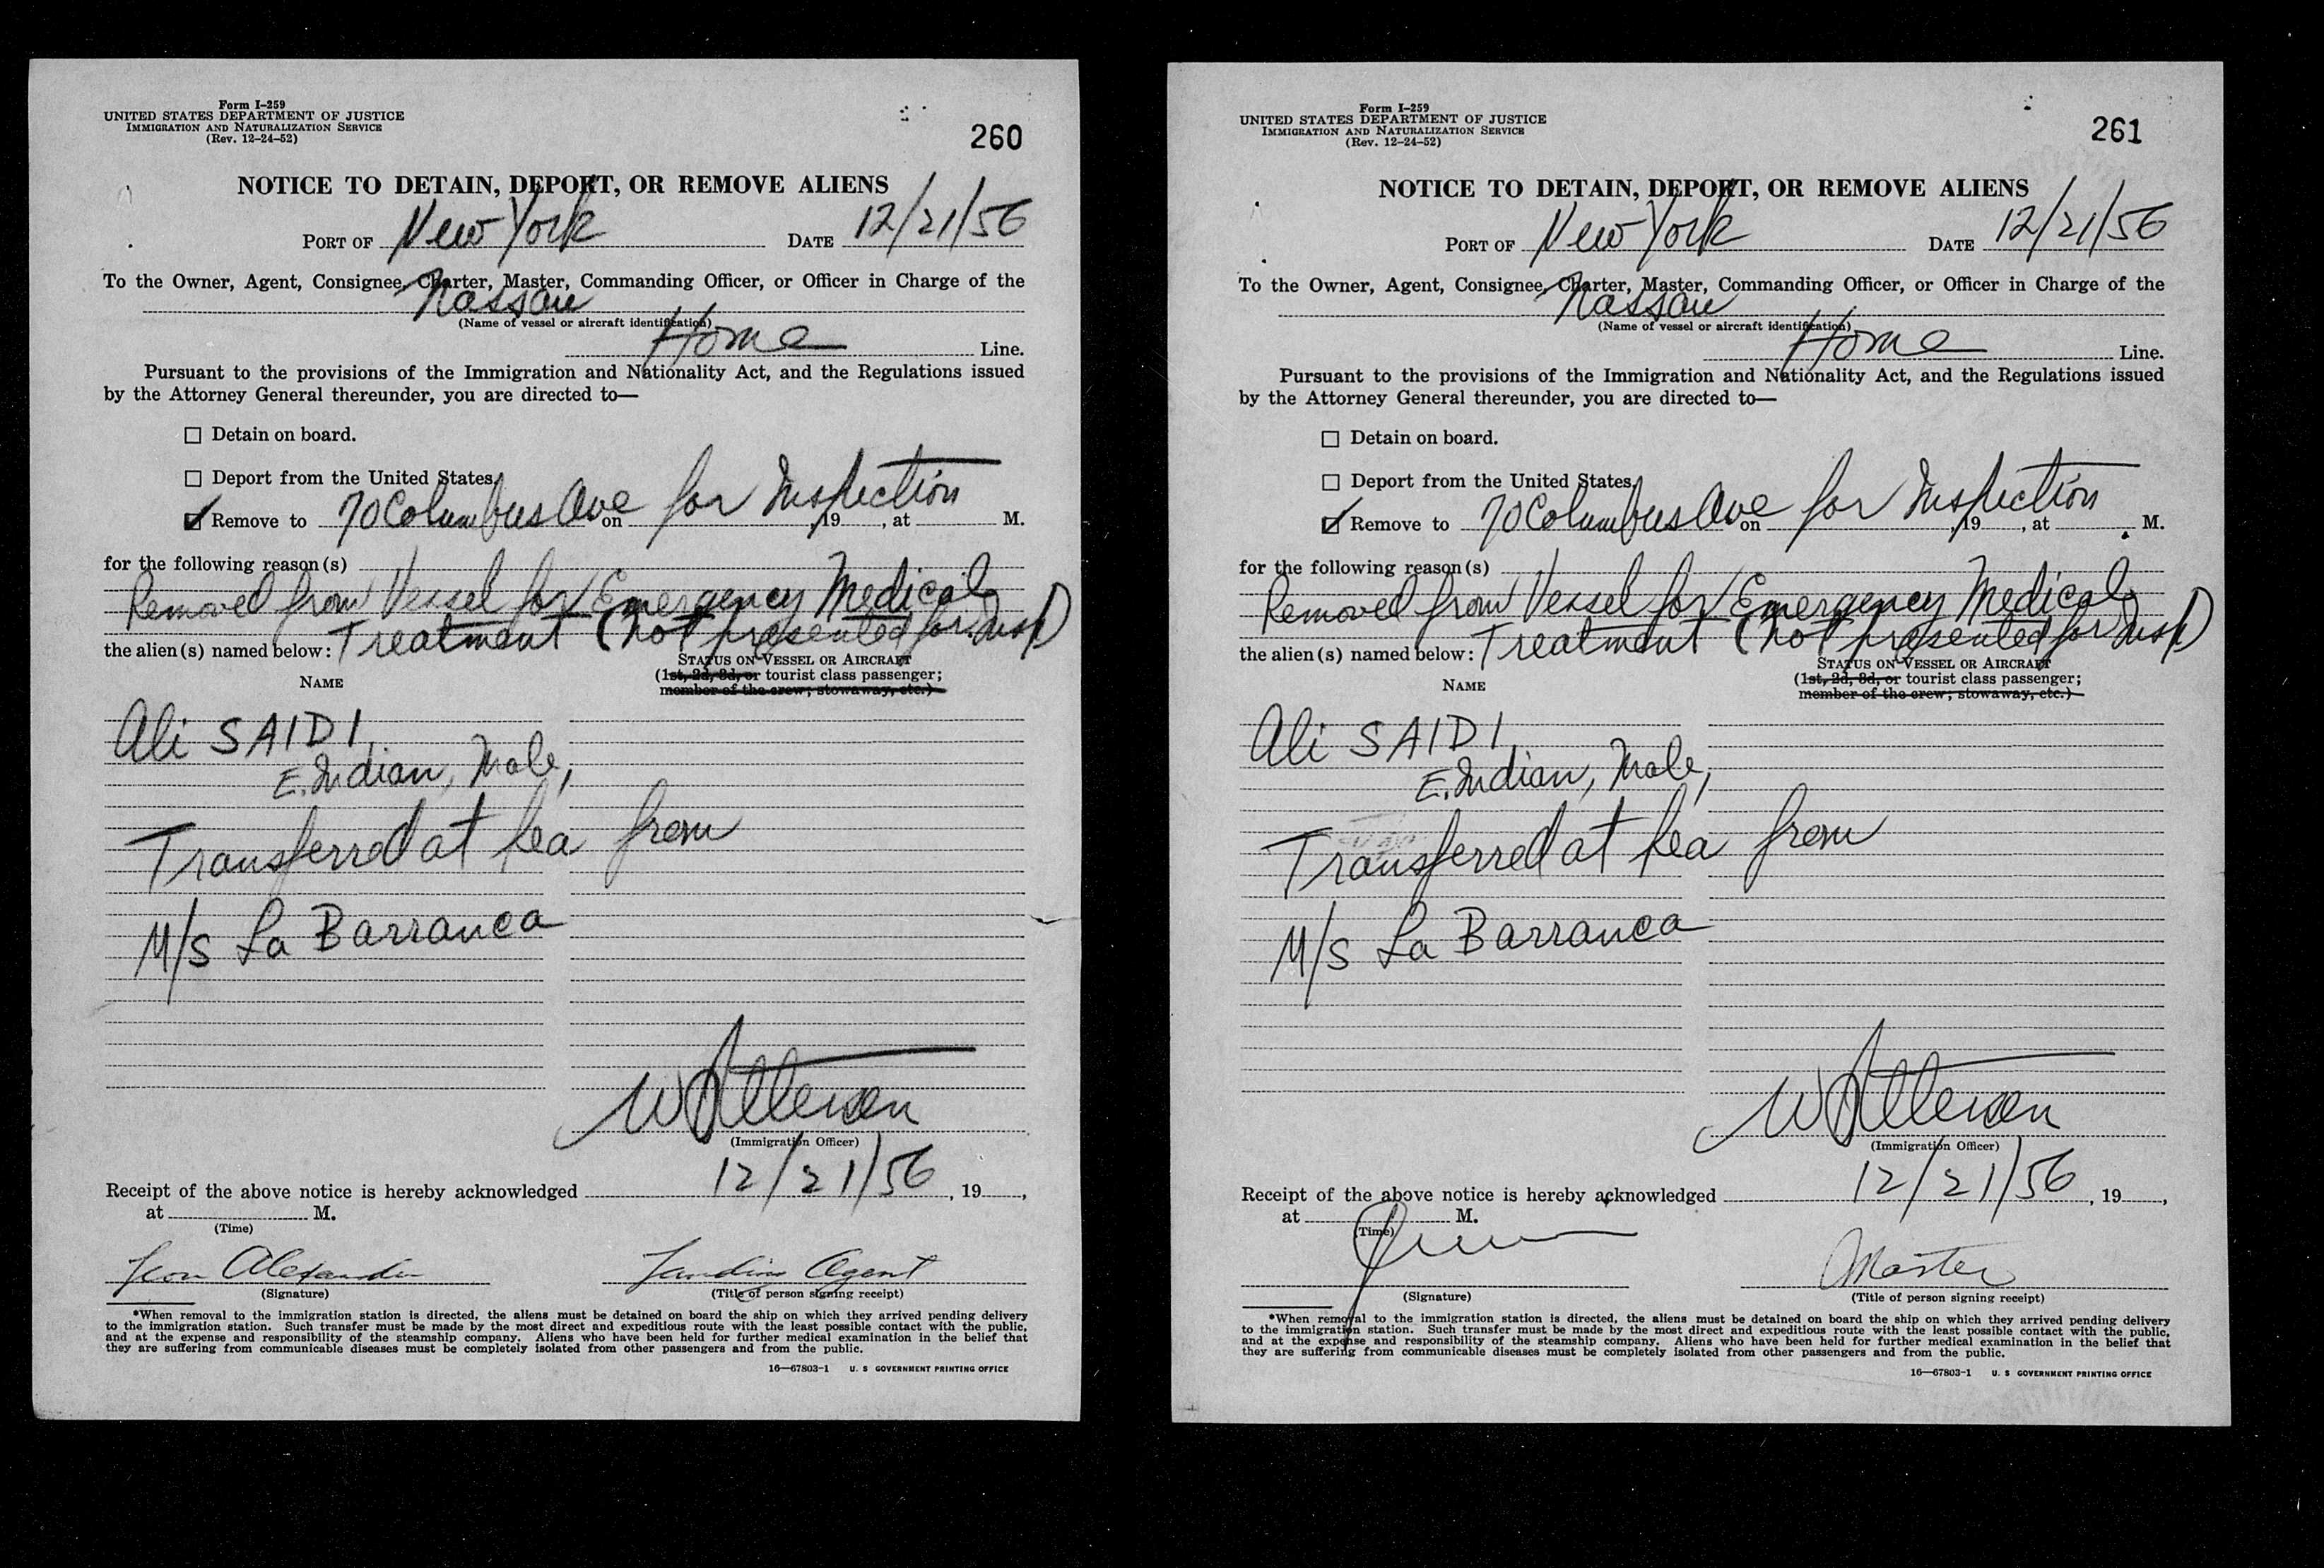 Form I-259
UNITED STATES DEPARTMENT OF JUSTICE
IMMIGRATION AND NATURALIZATION SERVICE
(Rev. 12-24-52)
260
NOTICE TO DETAIN, DEPORT, OR REMOVE ALIENS
PORT OF New York DATE 12/21/56
To the Owner, Agent, Consignee, Charter, Master, Commanding Officer, or Officer in Charge of the
Nassau
(Name of vessel or aircraft identification)
Home Line.
Pursuant to the provisions of the Immigration and Nationality Act, and the Regulations issued
by the Attorney General thereunder, you are directed to—
☐ Detain on board.
☐ Deport from the United States.
☑ Remove to 70 Columbus Ave on for Inspection, 19 , at M.
for the following reason(s)
Removed from Vessel for Emergency Medical
the alien(s) named below: Treatment (not presented for Insp)
STATUS ON VESSEL OR AIRCRAFT
NAME
(1st, 2d, 3d, or tourist class passenger;
member of the crew; stowaway, etc.)
Ali SAIDI
E. Indian, Male,
Transferred at sea from
M/S La Barranca
(Immigration Officer)
Receipt of the above notice is hereby acknowledged 12/21/56, 19 ,
at M.
(Time)
Leon Alexander Landing Agent
(Signature) (Title of person signing receipt)
*When removal to the immigration station is directed, the aliens must be detained on board the ship on which they arrived pending delivery
to the immigration station. Such transfer must be made by the most direct and expeditious route with the least possible contact with the public,
and at the expense and responsibility of the steamship company. Aliens who have been held for further medical examination in the belief that
they are suffering from communicable diseases must be completely isolated from other passengers and from the public.
16—67803-1 U. S GOVERNMENT PRINTING OFFICE
Form I-259
UNITED STATES DEPARTMENT OF JUSTICE
IMMIGRATION AND NATURALIZATION SERVICE
(Rev. 12-24-52)
261
NOTICE TO DETAIN, DEPORT, OR REMOVE ALIENS
PORT OF New York DATE 12/21/56
To the Owner, Agent, Consignee, Charter, Master, Commanding Officer, or Officer in Charge of the
Nassau
(Name of vessel or aircraft identification)
Home Line.
Pursuant to the provisions of the Immigration and Nationality Act, and the Regulations issued
by the Attorney General thereunder, you are directed to—
☐ Detain on board.
☐ Deport from the United States.
☑ Remove to 70 Columbus Ave on for Inspection, 19 , at M.
for the following reason(s)
Removed from Vessel for Emergency Medical
the alien(s) named below: Treatment (not presented for Insp)
STATUS ON VESSEL OR AIRCRAFT
NAME
(1st, 2d, 3d, or tourist class passenger;
member of the crew; stowaway, etc.)
Ali SAIDI
E. Indian, Male,
Transferred at sea from
M/S La Barranca
(Immigration Officer)
Receipt of the above notice is hereby acknowledged 12/21/56, 19 ,
at M.
(Time)
Master
(Signature) (Title of person signing receipt)
*When removal to the immigration station is directed, the aliens must be detained on board the ship on which they arrived pending delivery
to the immigration station. Such transfer must be made by the most direct and expeditious route with the least possible contact with the public,
and at the expense and responsibility of the steamship company. Aliens who have been held for further medical examination in the belief that
they are suffering from communicable diseases must be completely isolated from other passengers and from the public.
16—67803-1 U. S GOVERNMENT PRINTING OFFICE